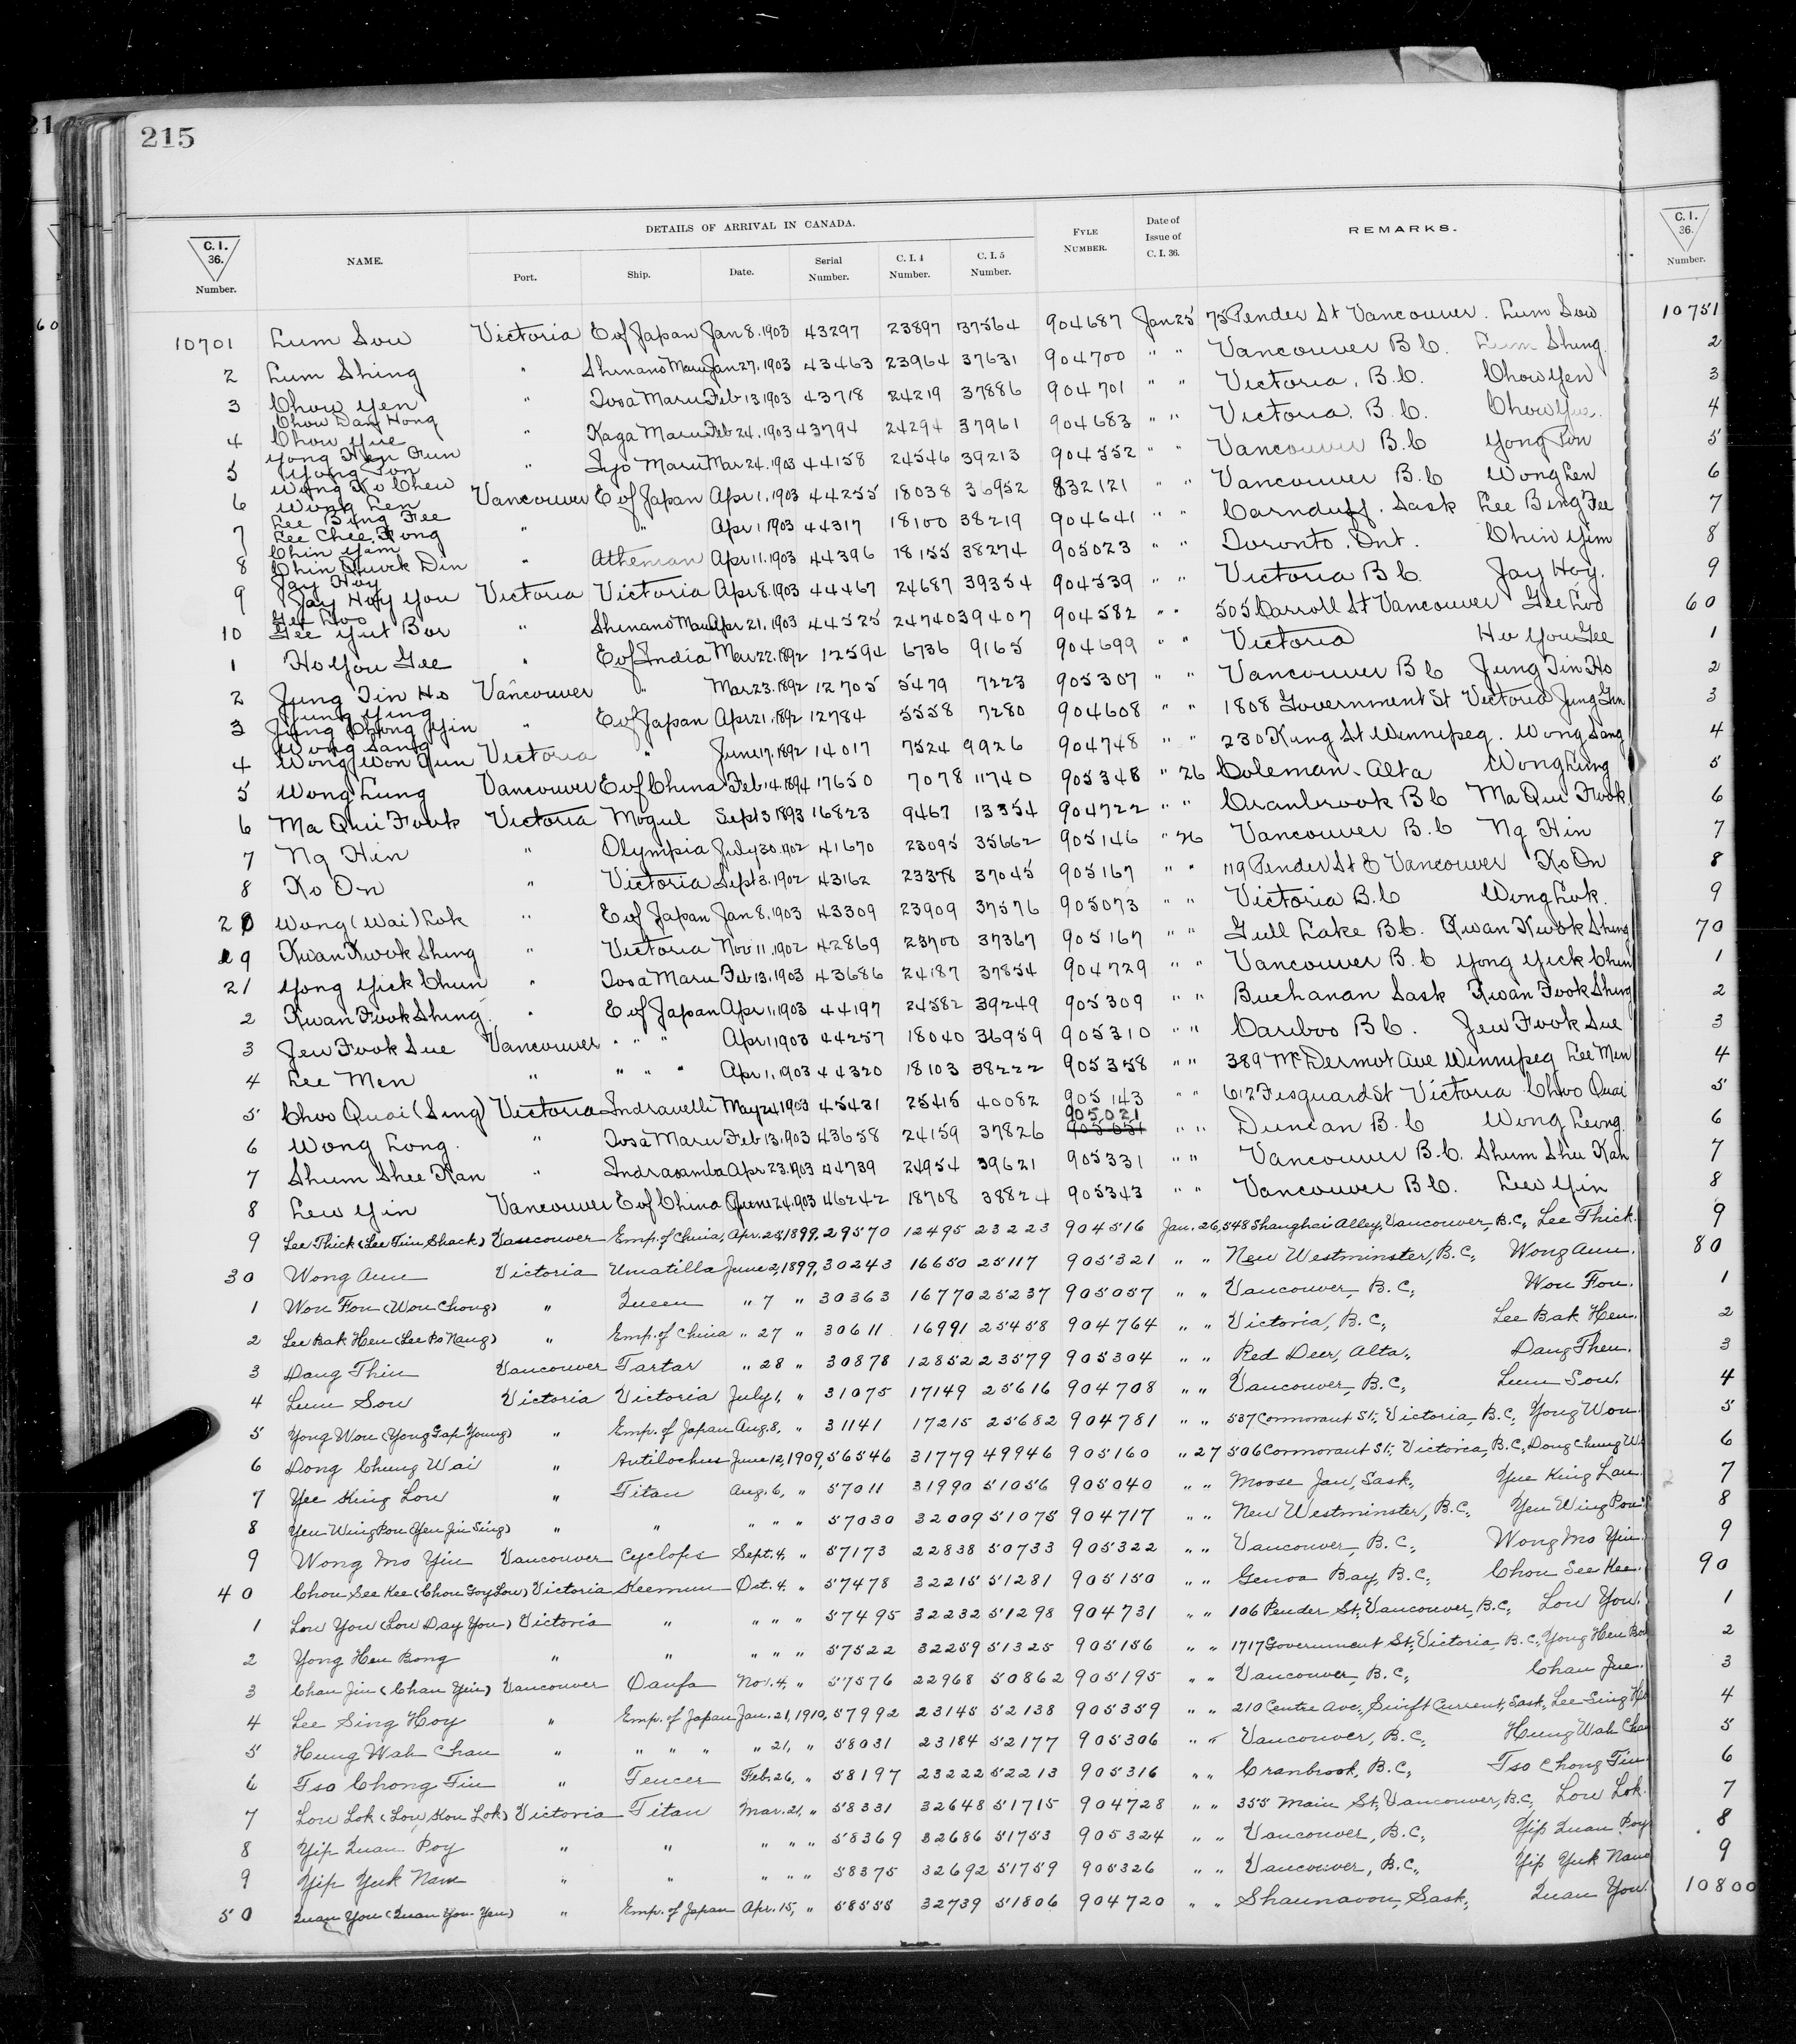 215
DETAILS OF ARRIVAL IN CANADA.
C. I. 36. Number. NAME. Port. Ship. Date. Serial Number. C. I. 4 Number. C. I. 5 Number. FYLE NUMBER. Date of Issue of C. I. 36. REMARKS. C. I. 36. Number.
10701 Lum Sow Victoria E of Japan Jan 8. 1903 43297 23897 37564 904687 Jan 25 75 Pender St Vancouver. Lum Sow 10751
2 Lum Shing " Shinano Maru Jan 27. 1903 43463 23964 37631 904700 " " Vancouver B C. Lum Shing. 2
3 Chow Yen " Tosa Maru Feb 13 1903 43718 24219 37886 904701 " " Victoria, B.C. Chow Yen 3
Chow Dan Hong
4 Chow Yue " Kaga Maru Feb 24. 1903 43794 24294 37961 904683 " " Victoria. B.C. Chow Yue. 4
Yong Hen Qun
5 Yong Ton " Iyo Maru Mar 24. 1903 44158 24546 39213 904552 " " Vancouver B.C Yong Ton 5
Wong Ko Chew
6 Wong Len Vancouver E of Japan Apr 1, 1903 44255 18038 36952 832121 " " Vancouver B.C Wong Len 6
Lee Bing Fee
7 Lee Chee Fong " " Apr 1 1903 44317 18100 38219 904641 " " Carnduff. Sask Lee Bing Fee 7
Chin Yam
8 Chin Quock Din " Athenian Apr 11. 1903 44396 18155 38274 905023 " " Toronto. Ont. Chin Yim 8
Jay Hoy
9 Jay Hoy You Victoria Victoria Apr 8. 1903 44467 24687 39354 904539 " " Victoria B C. Jay Hoy. 9
Gee Lwo
10 Gee Yut Bor " Shinano Maru Apr 21. 1903 44525 24740 39407 904582 " " 505 Carroll St Vancouver Gee Lwo 60
1 Ho You Gee " E of India Mar 22. 1892 12594 6736 9165 904699 " " Victoria Ho You Gee 1
2 Jung Tin Ho Vancouver " Mar 23. 1892 12705 5479 7223 905307 " " Vancouver B C Jung Tin Ho 2
Jung Ying
3 Jung Chong Yin " E of Japan Apr 21. 1892 12784 5558 7280 904608 " " 1808 Government St Victoria 3
Wong Sang
4 Wong Won Qun Victoria " June 17. 1892 14017 7524 9926 904748 " " 230 King St Winnipeg. Wong Sang 4
5 Wong Lung Vancouver E of China Feb 14. 1894 17650 7078 11740 905348 " 26 Coleman. Alta Wong Lung 5
6 Ma Qui Fook Victoria Mogul Sept 3 1893 16823 9467 13354 904722 " " Cranbrook B C Ma Qui Fook 6
7 Ng Hin " Olympia July 30. 1902 41670 23095 35662 905146 " 26 Vancouver B.C Ng Hin 7
8 Ko On " Victoria Sept 3. 1902 43162 23378 37045 905167 " " 119 Pender St E Vancouver Ko On 8
20 Wong (Wai) Lok " E of Japan Jan 8. 1903 43309 23909 37576 905073 " " Victoria B.C Wong Lok. 9
29 Kwan Kwok Shing " Victoria Nov 11. 1902 42869 23700 37367 905167 " " Gull Lake B C. Kwan Kwok Shing 70
21 Yong Yick Chun " Tosa Maru Feb 13. 1903 43686 24187 37854 904729 " " Vancouver B.C Yong Yick Chun 1
2 Kwan Fook Shing " E of Japan Apr 1. 1903 44197 24582 39249 905309 " " Buchanan Sask Kwan Fook Shing 2
3 Jew Fook Sue Vancouver " " " Apr 1 1903 44257 18040 36959 905310 " " Cariboo B C. Jew Fook Sue 3
4 Lee Men " " " " Apr 1. 1903 44320 18103 38222 905358 " " 389 McDermot Ave Winnipeg Lee Men 4
5 Choo Quai (Sing) Victoria Indravelli May 24. 1903 45431 25415 40082 905143 " " 612 Fisguard St Victoria Choo Quai 5
905021
6 Wong Long. " Tosa Maru Feb 13. 1903 43658 24159 37826 " " Duncan B.C Wong Leong. 6
7 Shum Shee Kan " Indrasamba Apr 23. 1903 44739 24954 39621 905331 " " Vancouver B.C. Shum Shee Kan 7
8 Lew Yin Vancouver E of China June 24. 1903 46242 18708 38824 905343 " " Vancouver B C. Lew Yin 8
9 Lee Thick (Lee Tim Shack) Vancouver Emp. of China, Apr. 28, 1899, 29570 12495 23223 904516 Jan. 26, 548 Shanghai Alley, Vancouver, B.C., Lee Thick. 9
30 Wong Ann Victoria Umatilla June 2, 1899, 30243 16650 25117 905321 " " New Westminster, B.C., Wong Ann. 80
1 Won Fon (Won Chong) " Queen " 7 " 30363 16770 25237 905057 " " Vancouver, B.C., Won Fon. 1
2 Lee Bak Hen (Lee Bo Nang) " Emp. of China " 27 " 30611 16991 25458 904764 " " Victoria, B.C., Lee Bak Hen. 2
3 Dang Thin Vancouver Tartar " 28 " 30878 12852 23579 905304 " " Red Deer, Alta., Dang Then. 3
4 Lum Sou Victoria Victoria July 1, " 31075 17149 25616 904708 " " Vancouver, B.C., Lum Sou. 4
5 Yong Won (Yong Gap Young) " Emp. of Japan Aug. 8, " 31141 17215 25682 904781 " " 537 Cormorant St., Victoria, B.C., Yong Won. 5
6 Dong Chung Wai " Antilochus June 12, 1909, 56546 31779 49946 905160 " 27 506 Cormorant St., Victoria, B.C., Dong Chung W 6
7 Yee King Lou " Titan Aug. 6, " 57011 31990 51056 905040 " " Moose Jaw, Sask., Yue King Lau. 7
8 Yen Wing Pon (Yen Jin Sing) " " " " " 57030 32009 51075 904717 " " New Westminster, B.C., Yen Wing Pon. 8
9 Wong Mo Yin Vancouver Cyclops Sept. 4, " 57173 22838 50733 905322 " " Vancouver, B.C., Wong Mo Yin. 9
40 Chou See Kee (Chou Goy Low) Victoria Keemun Oct. 4, " 57478 32215 51281 905150 " " Genoa Bay, B.C., Chou See Kee. 90
1 Lou You (Lou Day You) Victoria " " " " 57495 32232 51298 904731 " " 106 Pender St., Vancouver, B.C., Lou You. 1
2 Yong Hen Bong " " " " " 57522 32259 51325 905156 " " 1717 Government St., Victoria, B.C., Yong Hen Bon 2
3 Chan Jin (Chan Yin) Vancouver Oanfa Nov. 4, " 57576 22968 50862 905195 " " Vancouver, B.C., Chan Jue. 3
4 Lee Sing Hoy " Emp. of Japan Jan. 21, 1910, 57992 23145 52138 905359 " " 210 Centre Ave., Swift Current, Sask., Lee Sing Ho 4
5 Hung Wah Chan " " " " " 21, " 58031 23184 52177 905306 " " Vancouver, B.C., Hung Wah Cha 5
6 Tso Chong Tin " Teucer Feb. 26, " 58197 23222 52213 905316 " " Cranbrook, B.C., Tso Chong Tin. 6
7 Lou Lok (Lou Kou Lok) Victoria Titan Mar. 21, " 58331 32648 51715 904728 " " 355 Main St., Vancouver, B.C., Lou Lok. 7
8 Yip Quan Poy " " " " " 58369 32686 51753 905324 " " Vancouver, B.C., Yip Quan Poy 8
9 Yip Yuk Nam " " " " " 58375 32692 51759 905326 " " Vancouver, B.C., Yip Yuk Nam 9
50 Quan You (Quan You Yen) " Emp. of Japan Apr. 15, " 58555 32739 51806 904720 " " Shaunavon, Sask., Quan You. 10800